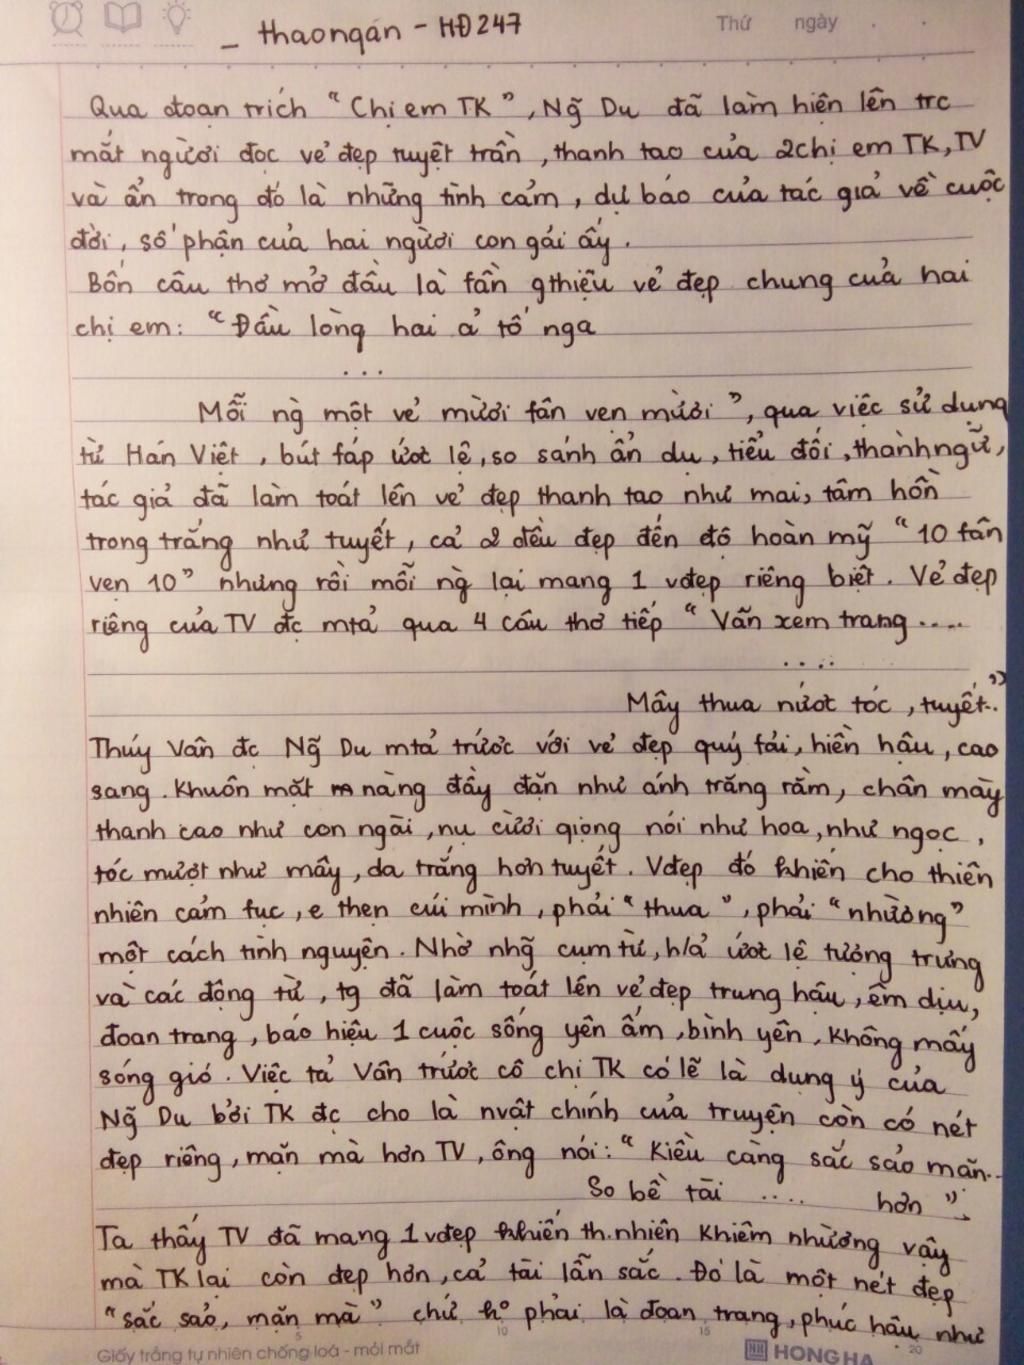 _ thaongan - HĐ247
Thứ ngày . .
Qua đoạn trích " Chị em TK " , Ng̃ Du đã làm hiện lên trc
mắt người đọc vẻ đẹp tuyệt trần , thanh tao của 2 chị em TK, TV
và ẩn trong đó là những tình cảm , dự báo của tác giả về cuộc
đời , số phận của hai người con gái ấy .
Bốn câu thơ mở đầu là fần gthiệu vẻ đẹp chung của hai
chị em : " Đầu lòng hai ả tố nga
. . .
Mỗi ng̀ một vẻ mười fân vẹn mười ", qua việc sử dụng
từ Hán Việt , bút fáp ước lệ, so sánh ẩn dụ , tiểu đối , thành ngữ ,
tác giả đã làm toát lên vẻ đẹp thanh tao như mai, tâm hồn
trong trắng như tuyết , cả 2 đều đẹp đến độ hoàn mỹ " 10 fân
vẹn 10 " nhưng rồi mỗi ng̀ lại mang 1 vđẹp riêng biệt . Vẻ đẹp
riêng của TV đc mtả qua 4 câu thơ tiếp " Vân xem trang ....
. . . .
Mây thua nước tóc , tuyết.. "
Thúy Vân đc Ng̃ Du mtả trước với vẻ đẹp quý fái , hiền hậu , cao
sang . Khuôn mặt nàng đầy đặn như ánh trăng rằm, chân mày
thanh cao như con ngài , nụ cười giọng nói như hoa, như ngọc ,
tóc mượt như mây , da trắng hơn tuyết . Vđẹp đó khiến cho thiên
nhiên cảm fục , e thẹn cúi mình , phải " thua " , phải " nhường "
một cách tình nguyện . Nhờ nhg̃ cụm từ, h/ả ước lệ tượng trưng
và các động từ , tg đã làm toát lên vẻ đẹp trung hậu , êm dịu ,
đoan trang , báo hiệu 1 cuộc sống yên ấm , bình yên , không mấy
sóng gió . Việc tả Vân trước cô chị TK có lẽ là dụng ý của
Ng̃ Du bởi TK đc cho là nvật chính của truyện còn có nét
đẹp riêng , mặn mà hơn TV , ông nói : " Kiều càng sắc sảo mặn...
So bề tài .... hơn " ;
Ta thấy TV đã mang 1 vđẹp khiến th.nhiên khiêm nhường vậy
mà TK lại còn đẹp hơn , cả tài lẫn sắc . Đó là một nét đẹp
" sắc sảo, mặn mà " chứ k° phải là đoan trang , phúc hậu như
5 10 15 20
Giấy trắng tự nhiên chống loá - mỏi mắt
HH HONG HA